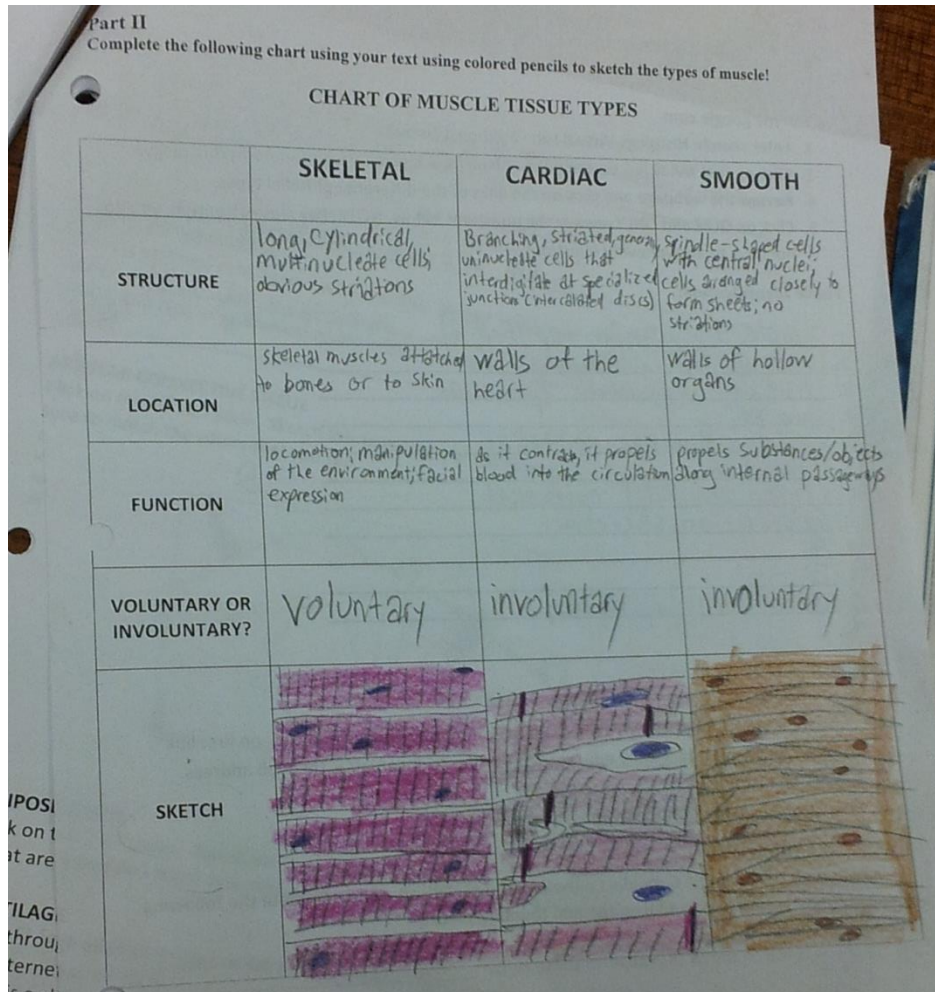 Part II
Complete the following chart using your text using colored pencils to sketch the types of muscle!
CHART OF MUSCLE TISSUE TYPES
SKELETAL
CARDIAC
SMOOTH
STRUCTURE
long, cylindrical,
multinucleate cells;
obvious striatons
Branching, striated, generally
uninucleate cells that
interdigitate at specialized
junction (intercalated discs)
spindle-shaped cells
with central nuclei;
cells aranged closely to
form sheets; no
striations
LOCATION
skeletal muscles attatched
to bones or to skin
walls of the
heart
walls of hollow
organs
FUNCTION
locomotion; manipulation
of the environment; facial
expression
as it contracts, it propels
blood into the circulation
propels substances/objects
along internal passageways
VOLUNTARY OR
INVOLUNTARY?
voluntary
involuntary
involuntary
SKETCH
IPOSI
k on t
at are
TILAG
throu
terne